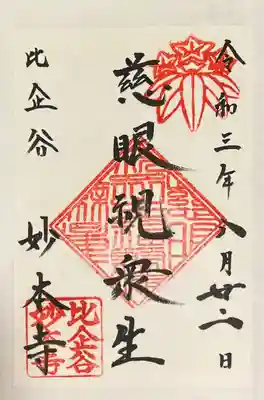 令和三年八月廿二日
慈眼視衆生
比企谷
妙本寺
比企谷
妙本寺